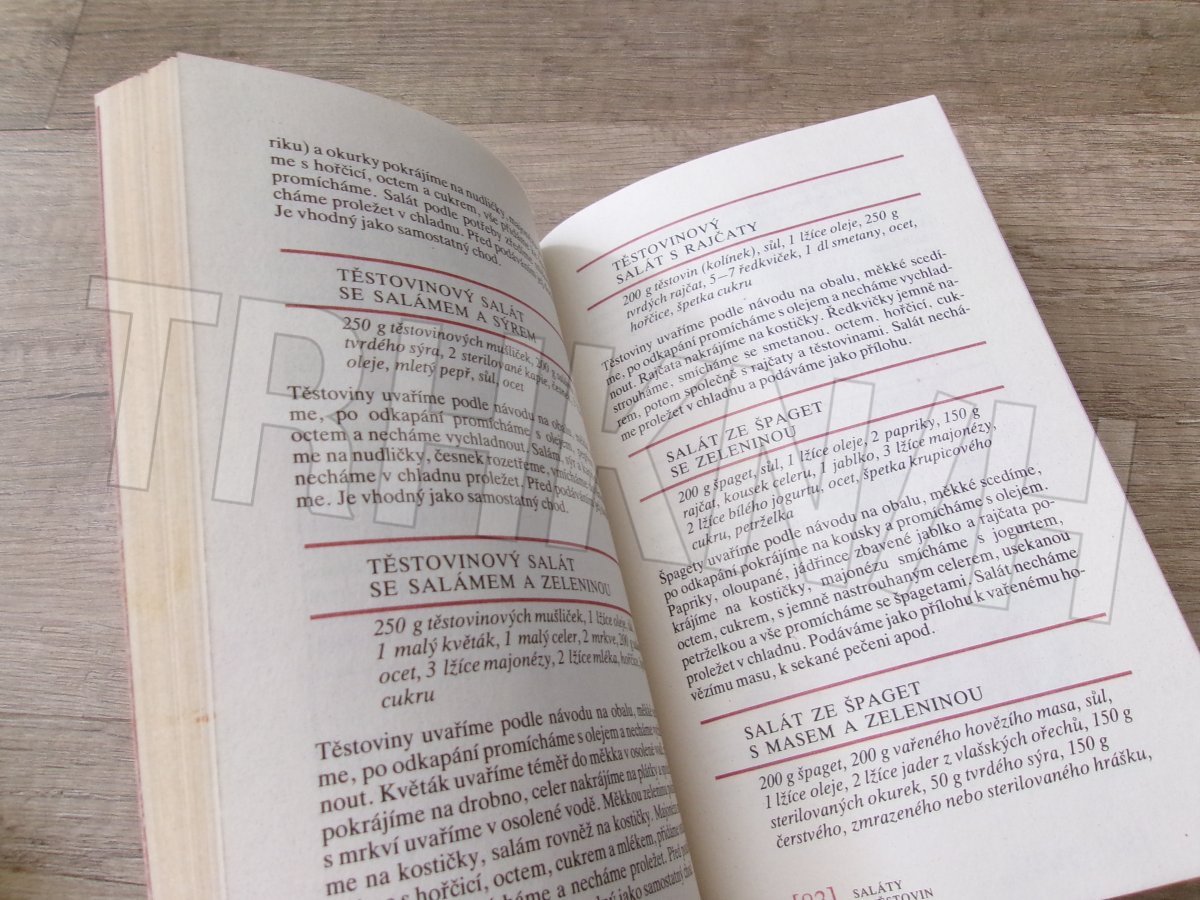 riku) a okurky pokrájíme na nudličky,
me s hořčicí, octem a cukrem, vše přidáme
promícháme. Salát podle potřeby zředíme
cháme proležet v chladnu. Před podáváním
Je vhodný jako samostatný chod.
TĚSTOVINOVÝ SALÁT
SE SALÁMEM A SÝREM
250 g těstovinových mušliček, 200 g
tvrdého sýra, 2 sterilované kapie,
oleje, mletý pepř, sůl, ocet
Těstoviny uvaříme podle návodu na obalu,
me, po odkapání promícháme s olejem,
octem a necháme vychladnout. Salám, sýr a
me na nudličky, česnek rozetřeme, vmícháme
necháme v chladnu proležet. Před podáváním
me. Je vhodný jako samostatný chod.
TĚSTOVINOVÝ SALÁT
SE SALÁMEM A ZELENINOU
250 g těstovinových mušliček, 1 lžíce oleje,
1 malý květák, 1 malý celer, 2 mrkve, 200 g
ocet, 3 lžíce majonézy, 2 lžíce mléka,
cukru
Těstoviny uvaříme podle návodu na obalu,
me, po odkapání promícháme s olejem a necháme
nout. Květák uvaříme téměř do měkka v osolené
pokrájíme na drobno, celer nakrájíme na plátky a
s mrkví uvaříme v osolené vodě. Měkkou zeleninu
me na kostičky, salám rovněž na kostičky.
s hořčicí, octem, cukrem a mlékem, přidáme
a necháme proležet. Před
jako samostatný
TĚSTOVINOVÝ
SALÁT S RAJČATY
200 g těstovin (kolínek), sůl, 1 lžíce oleje, 250 g
tvrdých rajčat, 5–7 ředkviček, 1 dl smetany, ocet,
hořčice, špetka cukru
Těstoviny uvaříme podle návodu na obalu, měkké scedí-
me, po odkapání promícháme s olejem a necháme vychlad-
nout. Rajčata nakrájíme na kostičky. Ředkvičky jemně na-
strouháme, smícháme se smetanou, octem, hořčicí, cuk-
rem, potom společně s rajčaty a těstovinami. Salát nechá-
me proležet v chladnu a podáváme jako přílohu.
SALÁT ZE ŠPAGET
SE ZELENINOU
200 g špaget, sůl, 1 lžíce oleje, 2 papriky, 150 g
rajčat, kousek celeru, 1 jablko, 3 lžíce majonézy,
2 lžíce bílého jogurtu, ocet, špetka krupicového
cukru, petrželka
Špagety uvaříme podle návodu na obalu, měkké scedíme,
po odkapání pokrájíme na kousky a promícháme s olejem.
Papriky, oloupané, jádřince zbavené jablko a rajčata po-
krájíme na kostičky, majonézu smícháme s jogurtem,
octem, cukrem, s jemně nastrouhaným celerem, usekanou
petrželkou a vše promícháme se špagetami. Salát necháme
proležet v chladnu. Podáváme jako přílohu k vařenému ho-
vězímu masu, k sekané pečeni apod.
SALÁT ZE ŠPAGET
S MASEM A ZELENINOU
200 g špaget, 200 g vařeného hovězího masa, sůl,
1 lžíce oleje, 2 lžíce jader z vlašských ořechů, 150 g
sterilovaných okurek, 50 g tvrdého sýra, 150 g
čerstvého, zmrazeného nebo sterilovaného hrášku,
SALÁTY
TRHKNIH